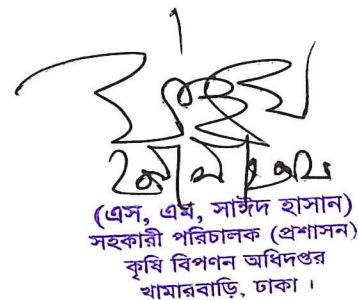 (এস, এম, সাঈদ হাসান)
সহকারী পরিচালক (প্রশাসন)
কৃষি বিপণন অধিদপ্তর
খামারবাড়ি, ঢাকা ।